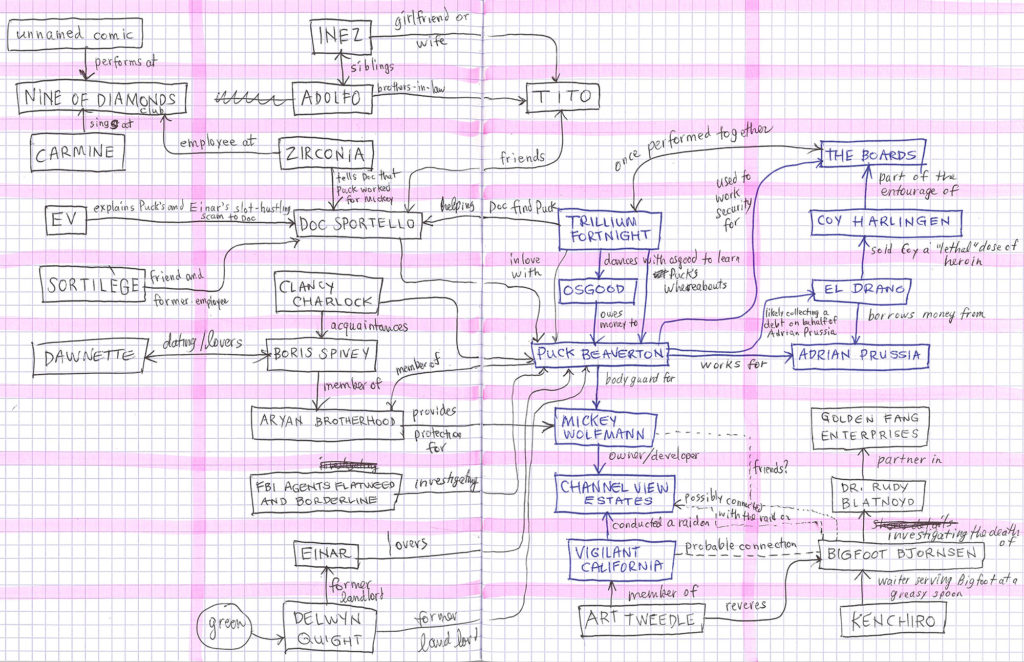 unnamed comic
performs at
NINE OF DIAMONDS
club
sings at
CARMINE
INEZ
girlfriend or
wife
siblings
ADOLFO
brothers-in-law
TITO
employee at
ZIRCONIA
friends
tells Doc that
Puck worked
for Mickey
EV
explains Puck's and Einar's slot-hustling
scam to Doc
DOC SPORTELLO
helping Doc find Puck
TRILLIUM
FORTNIGHT
once performed together
THE BOARDS
used to
work
security
for
part of the
entourage of
COY HARLINGEN
sold Coy a "lethal" dose of
heroin
SORTILEGE
friend and
former employee
CLANCY
CHARLOCK
acquaintances
in love
with
dances with osgood to learn
Puck's
whereabouts
OSGOOD
owes
money to
EL DRANO
likely collecting a
debt on behalf of
Adrian Prussia
borrows money from
DAWNETTE
dating/lovers
BORIS SPIVEY
member of
member of
PUCK BEAVERTON
works for
ADRIAN PRUSSIA
body guard for
ARYAN BROTHERHOOD
provides
protection
for
MICKEY
WOLFMANN
owner/developer
friends?
GOLDEN FANG
ENTERPRISES
partner in
investigating
FBI AGENTS FLATWEED
AND BORDERLINE
investigating
CHANNEL VIEW
ESTATES
possibly connected
with the raid on
DR. RUDY
BLATNOYD
investigating the death
of
conducted a raid on
EINAR
lovers
VIGILANT
CALIFORNIA
probable connection
BIGFOOT BJORNSEN
former
landlord
member of
waiter serving Bigfoot at a
greasy spoon
green
DELWYN
QUIGHT
former
land lord
ART TWEEDLE
reveres
KENCHIRO